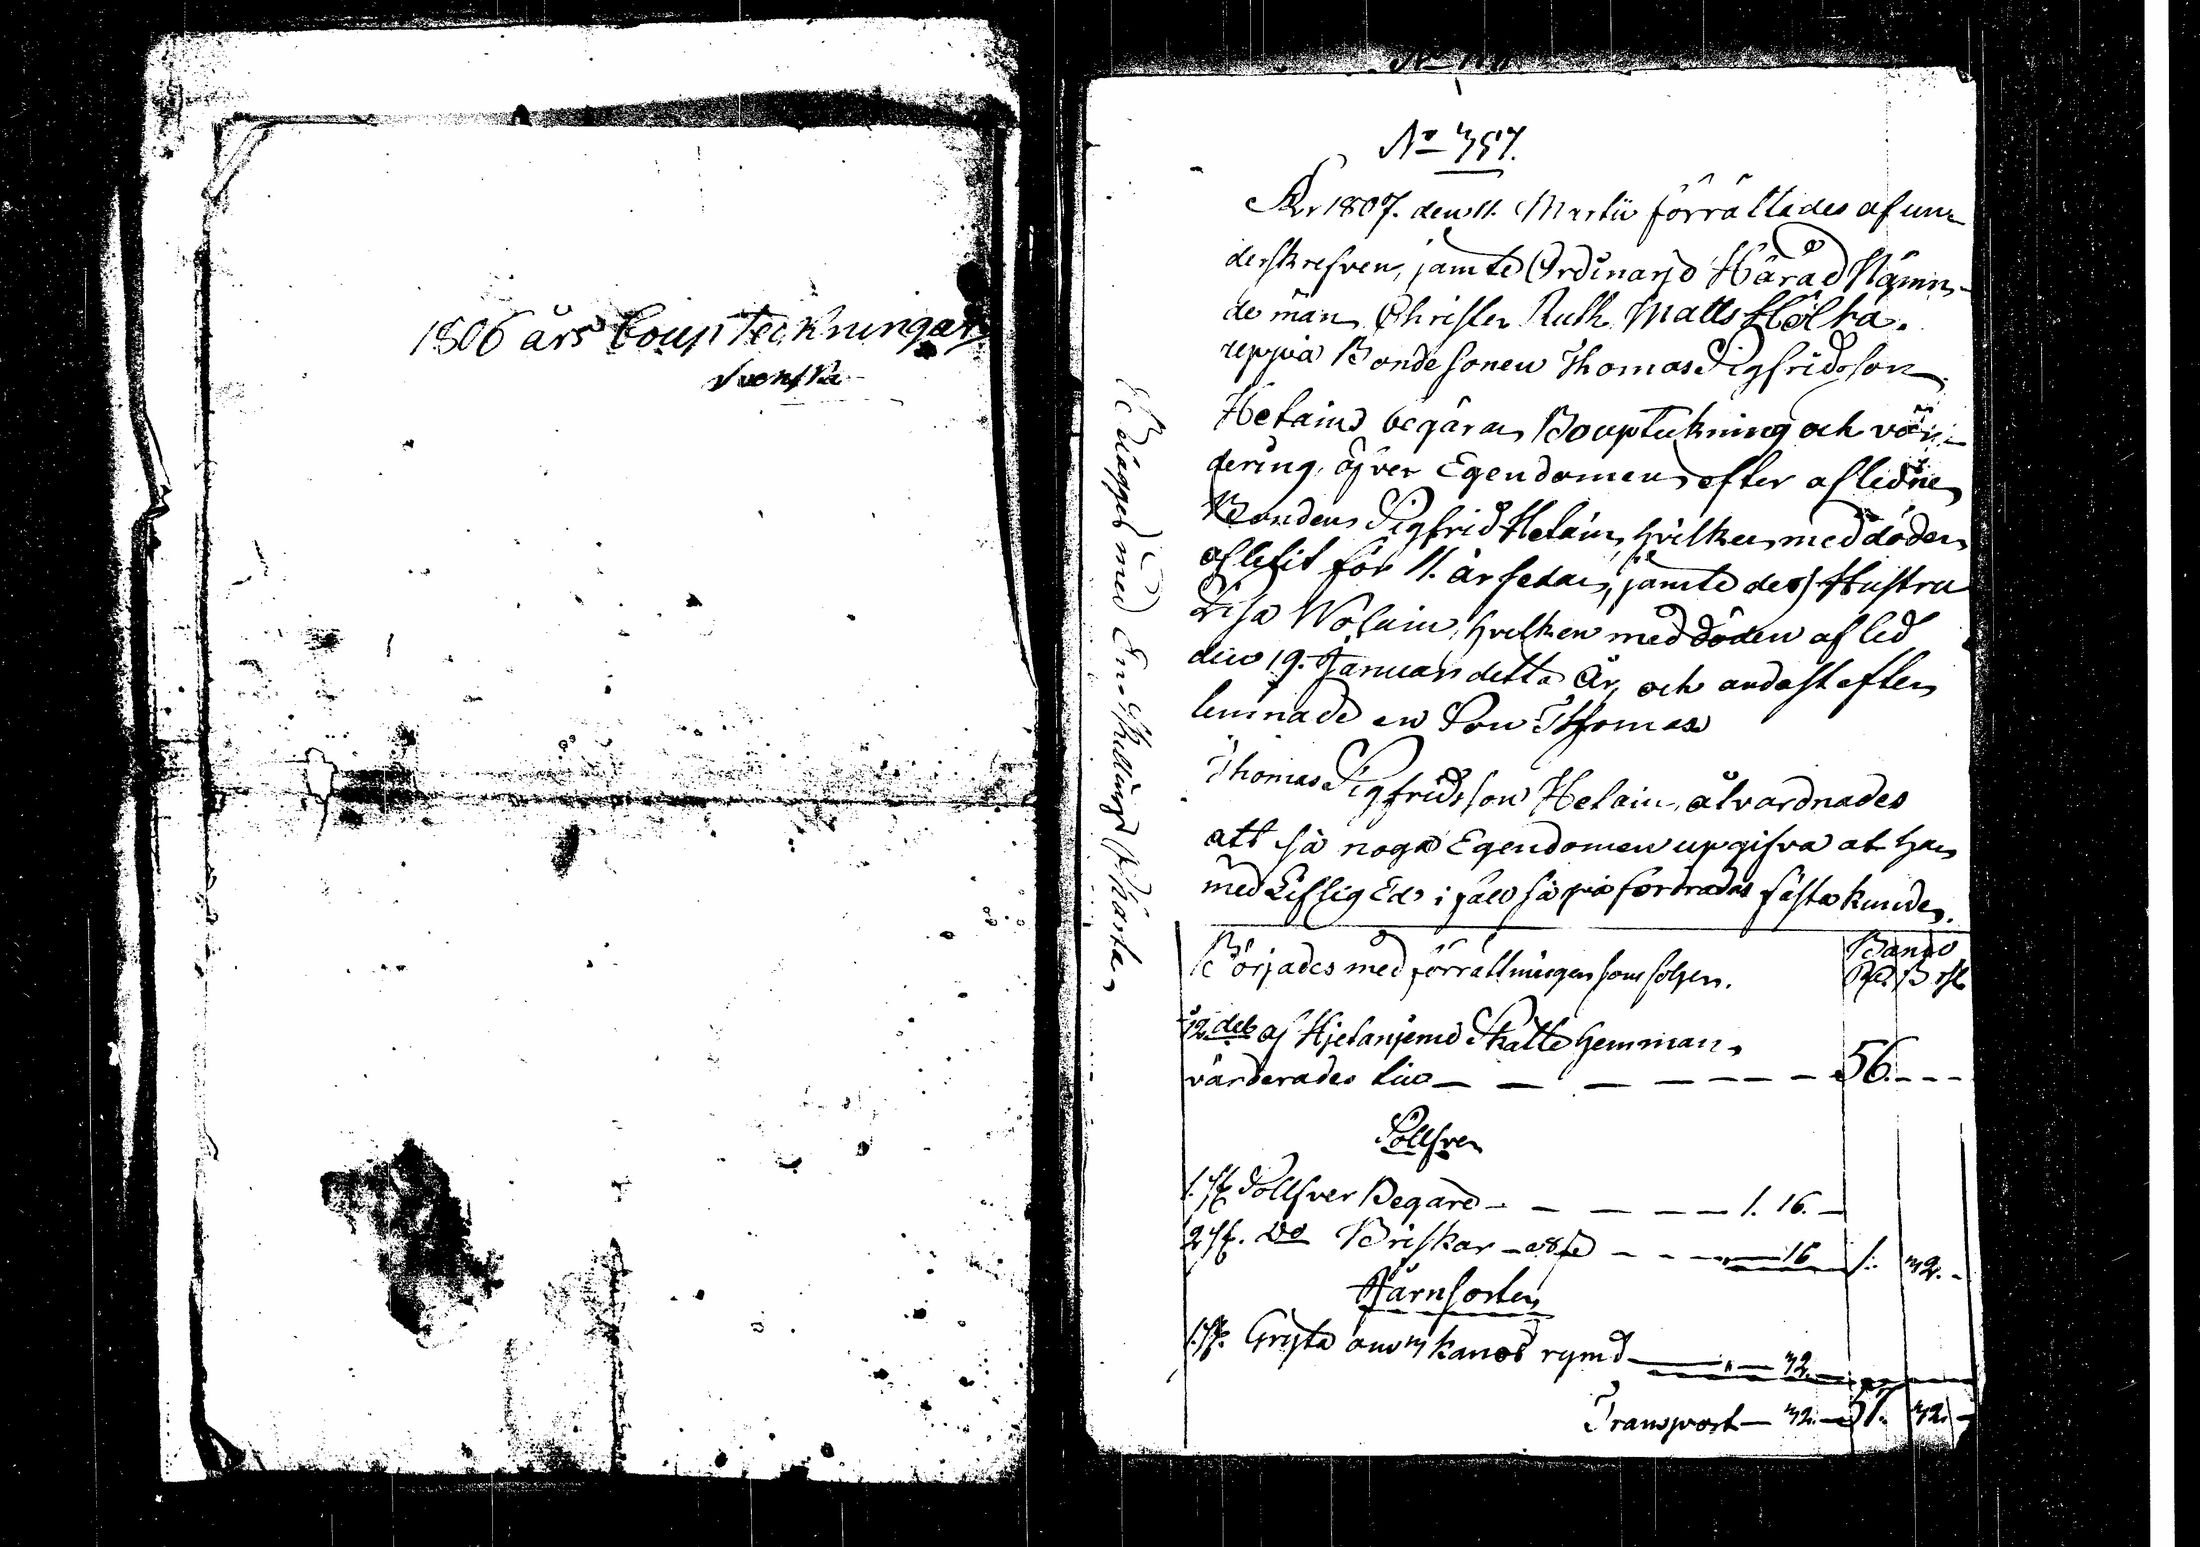 1806 års Boup Teckningar
Svenska
No 357.
År 1807. den 11. Martii förrättades af un-
derskrefven, jämte Ordinarje Härad Nämn-
de män, Christer Ruth Matts Hölkä.
uppå Bonde sonen Thomas Sigfridsson
Hetain begäran Bouptekning och vär-
dering, öfver Egendomen efter aflidne
Bonden Sigfrid Hetain, hvilken med döden
aflidit för 11. år sedan, jämte dess Hustru
Lisa Wolain, hvilken med döden afled
den 19. Januari detta År, och endast efter
lemnade en Son Thomas
Thomas Sigfridsson Hetain, alvardnades
att så noga Egendomen upgifva at han
med Liflig Ed i fall så påfordrades fästa kunde.
Belägges med En Skillings Charta
Börjades med förrättningen som följer.
Banco
Rd. ß rst
12 del af Hjetanjemi Skatte hemman
värderades till — — — — — — 56. - - -
Sölfver
1. st. Sölfver Begare — — — — 1. 16. —
2 st. do Briskar — — — 16 1. 32. -
Järnsorter
1. st. Gryta om 3 kanos rymd — „ — 32.
Transport — 32. — 57. 32. -